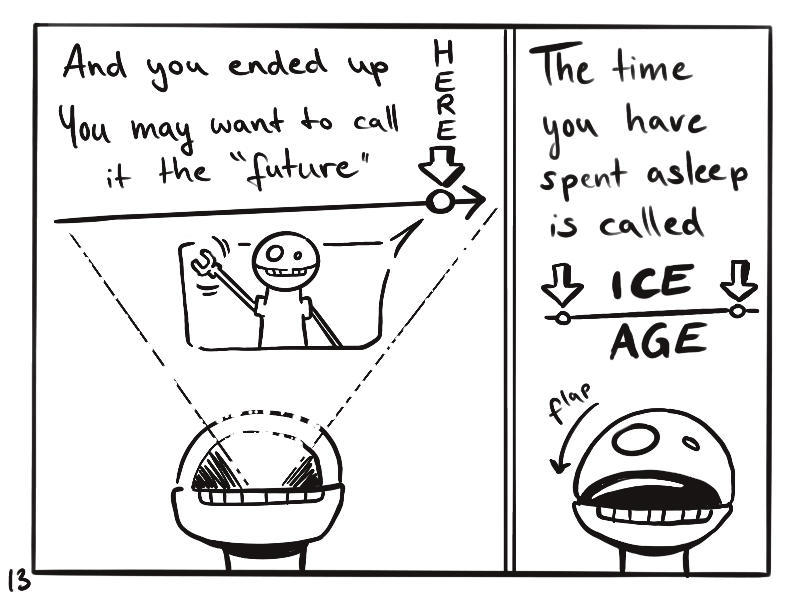 And you ended up
You may want to call
it the "future"
HERE
The time
you have
spent asleep
is called
ICE
AGE
flap
13